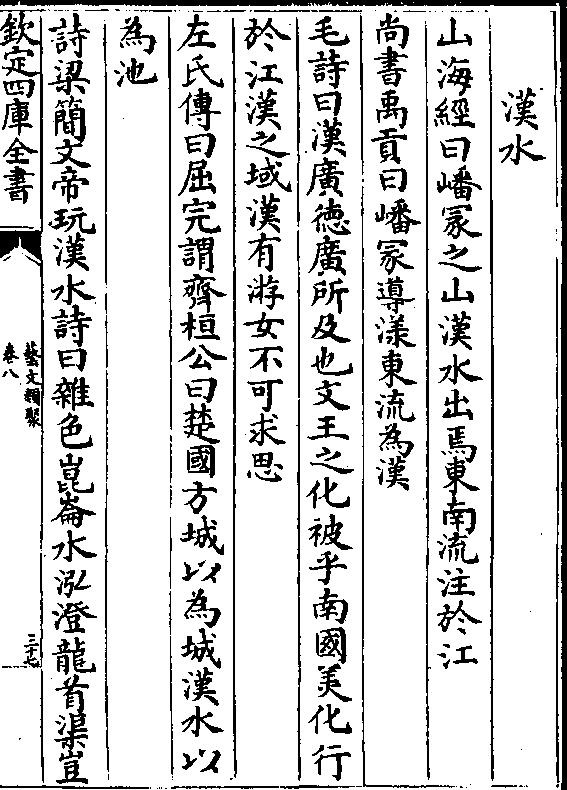 漢水
山海經曰嶓冢之山漢水出焉東南流注於江
尚書禹貢曰嶓冢導漾東流為漢
毛詩曰漢廣德廣所及也文王之化被乎南國美化行
於江漢之域漢有游女不可求思
左氏傳曰屈完謂齊桓公曰楚國方城以為城漢水以
為池
詩梁簡文帝玩漢水詩曰雜色崑崙水泓澄龍首渠豈
欽定四庫全書
藝文類聚
卷八
三十七